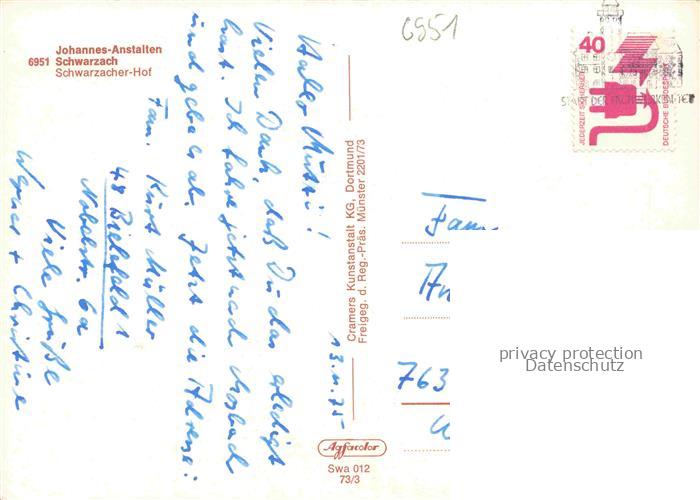 6951
Johannes-Anstalten
6951 Schwarzach
Schwarzacher-Hof
40
JEDERZEIT SICHERHEIT
DEUTSCHE BUNDESPOST
13.11.75
Hallo Mutti!
Vielen Dank, daß Du das erledigt
hast. Ich fahre jetzt nach Mosbach
und gebe es ab. Jetzt die Adresse:
Fam. Kurt Müller
48 Bielefeld 1
Nobelstr. 6a
Viele Grüße
Werner + Christine
Cramers Kunstanstalt KG, Dortmund
Freigeg. d. Reg.-Präs. Münster 2201/73
Fam
763
privacy protection
Datenschutz
Agfacolor
Swa 012
73/3